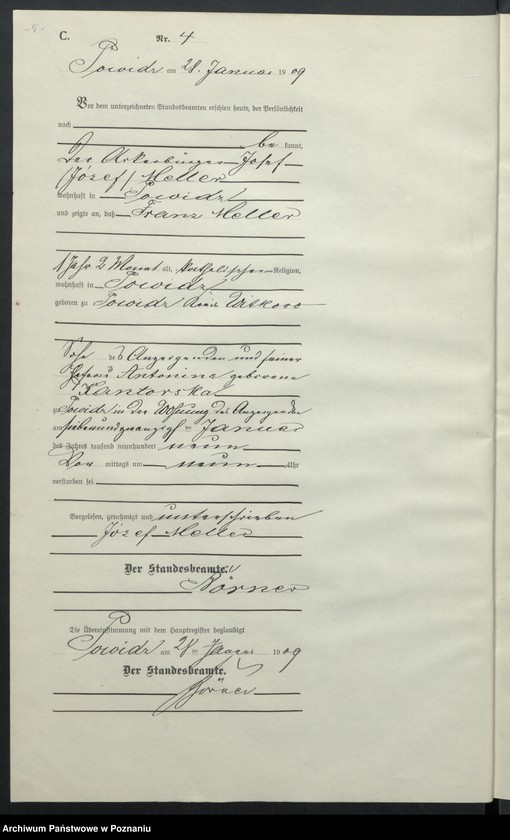 - 5 -
C.
Nr. 4
Powidz am 28. Januar 1909
Vor dem unterzeichneten Standesbeamten erschien heute, der Persönlichkeit
nach
be kannt,
Der Ackerbürger Josef
(Józef) Meller
wohnhaft in Powidz
und zeigte an, daß Franz Meller
1 Jahr 2 Monat alt, katholischer Religion,
wohnhaft in Powidz
geboren zu Powidz Kreis Witkowo
Sohn des Anzeigenden und seiner
Ehefrau Antonina geborene
Kantorska
zu Powidz in der Wohnung des Anzeigenden
am siebenundzwanzigsten Januar
des Jahres tausend neunhundert neun
Vor mittags um neun Uhr
verstorben sei.
Vorgelesen, genehmigt und unterschrieben
Józef Meller
Der Standesbeamte.
Börner
Die Übereinstimmung mit dem Hauptregister beglaubigt
Powidz am 28 ten Januar 1909
Der Standesbeamte.
Börner
Archiwum Państwowe w Poznaniu